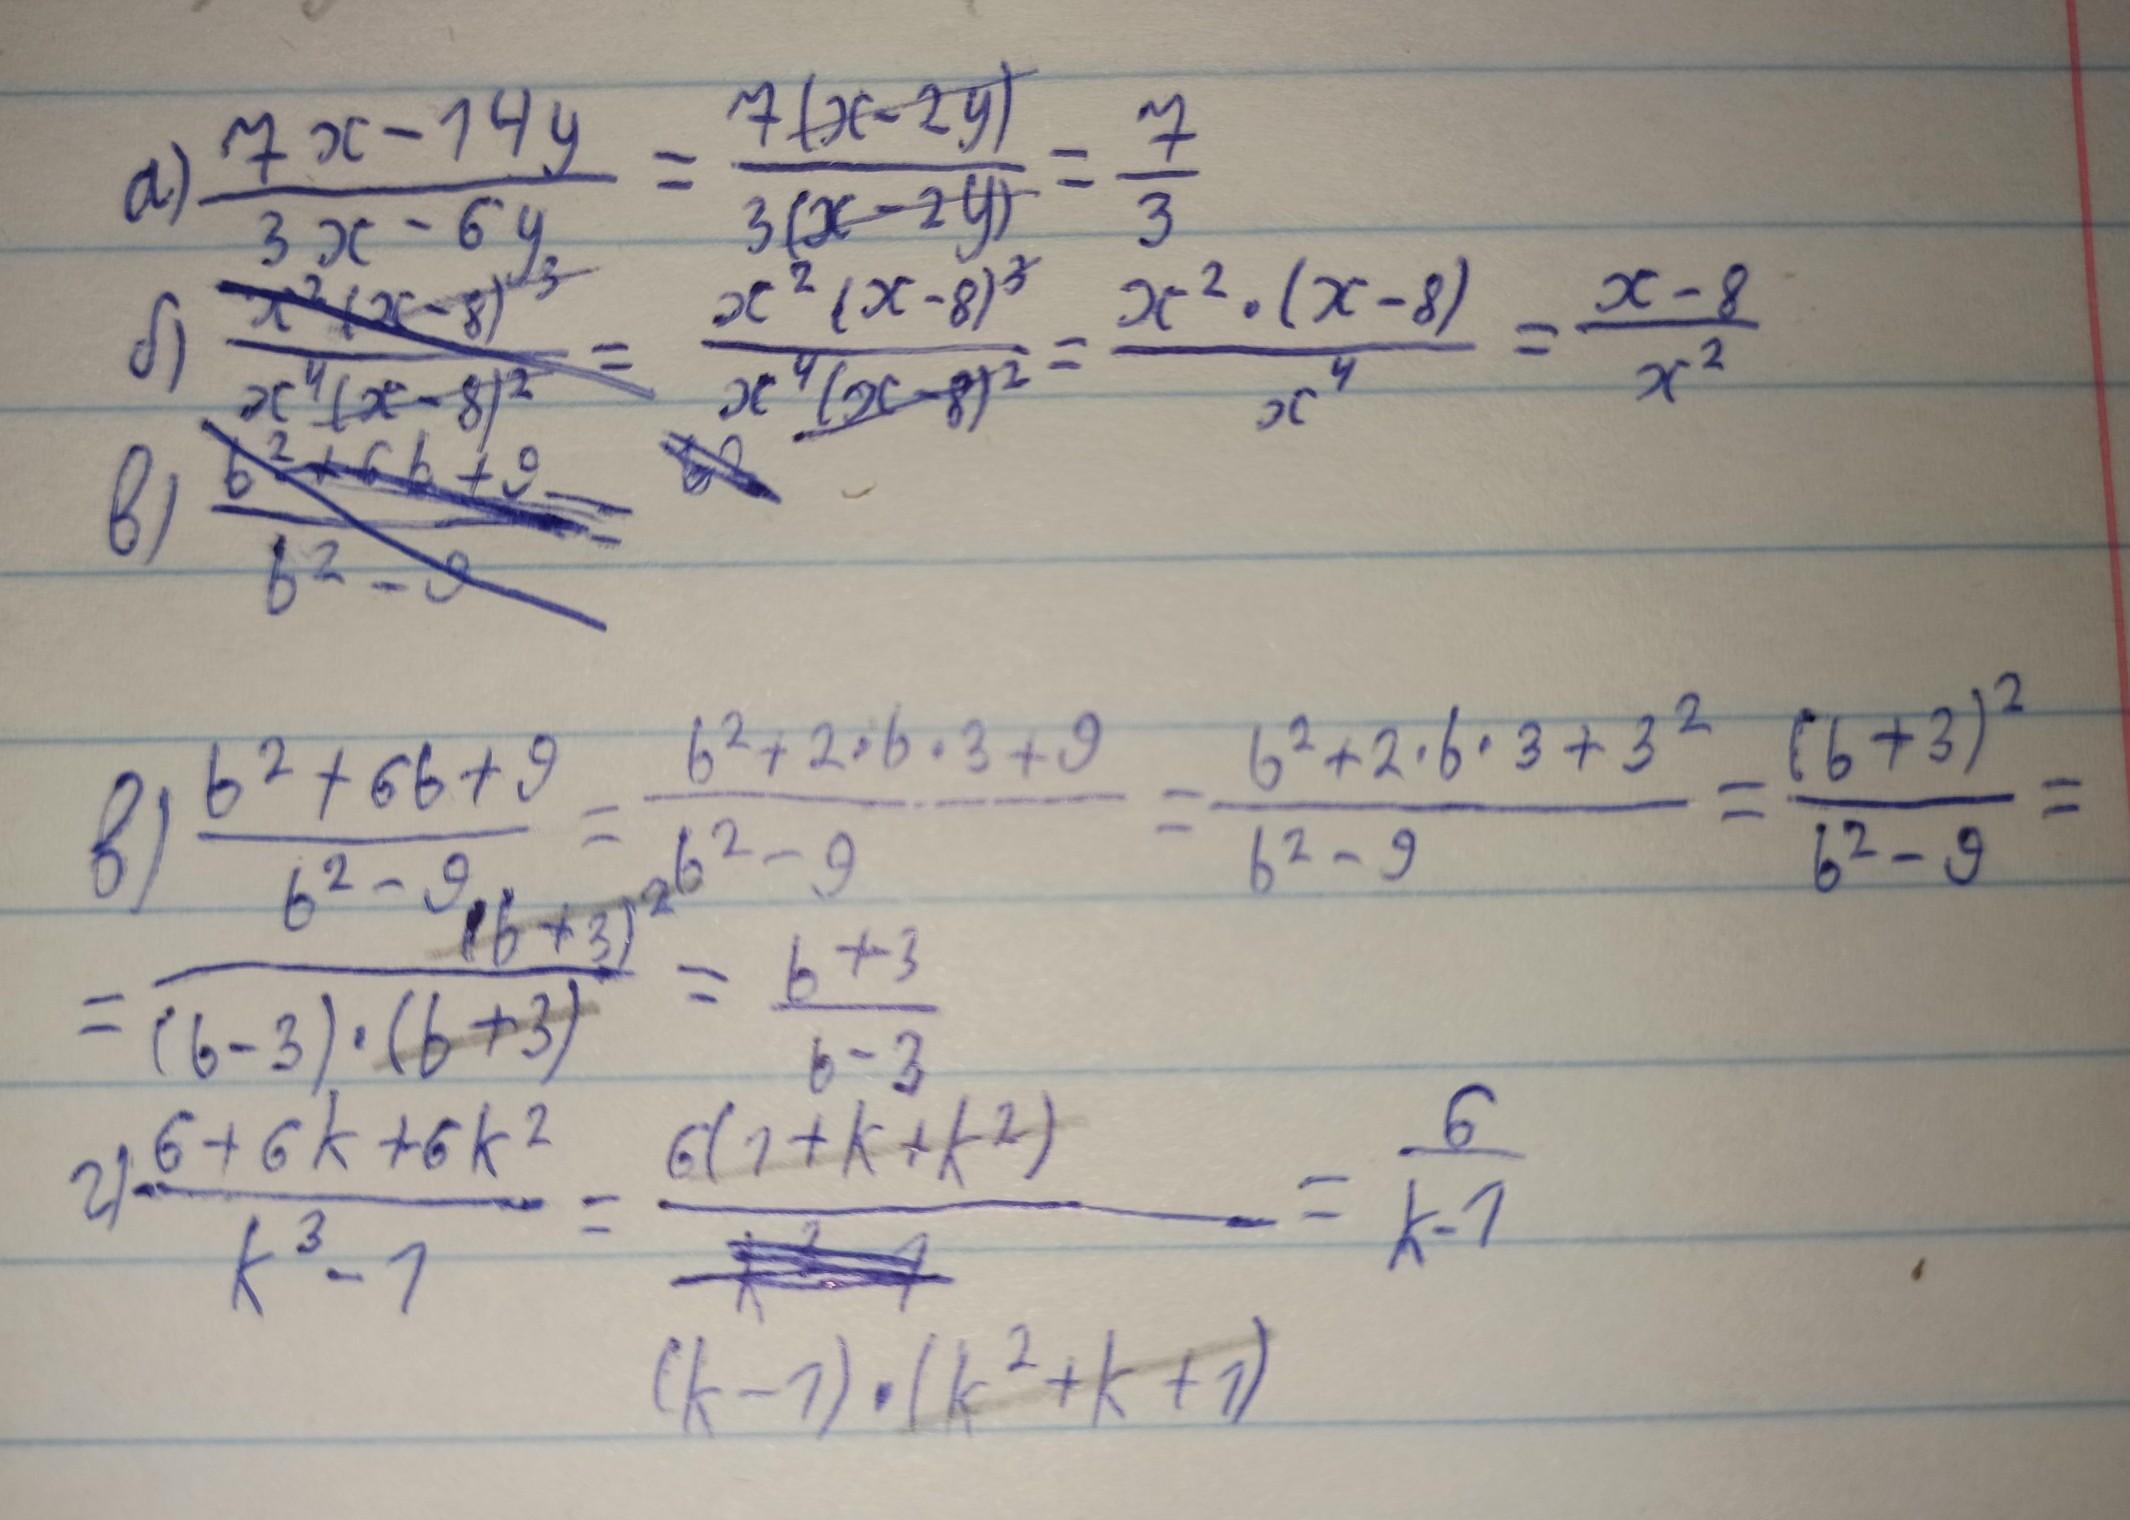 а) (7x-14y)/(3x-6y) = (7(x-2y))/(3(x-2y)) = 7/3
б) (x²(x-8)³)/(x⁴(x-8)²) = (x²(x-8)³)/(x⁴(x-8)²) = (x²·(x-8))/x⁴ = (x-8)/x²
в) (b²+6b+9)/(b²-9) =
в) (b²+6b+9)/(b²-9) = (b²+2·b·3+9)/(b²-9) = (b²+2·b·3+3²)/(b²-9) = (b+3)²/(b²-9) =
= (b+3)²/((b-3)·(b+3)) = (b+3)/(b-3)
г) (6+6k+6k²)/(k³-1) = (6(1+k+k²))/((k-1)·(k²+k+1)) = 6/(k-1)